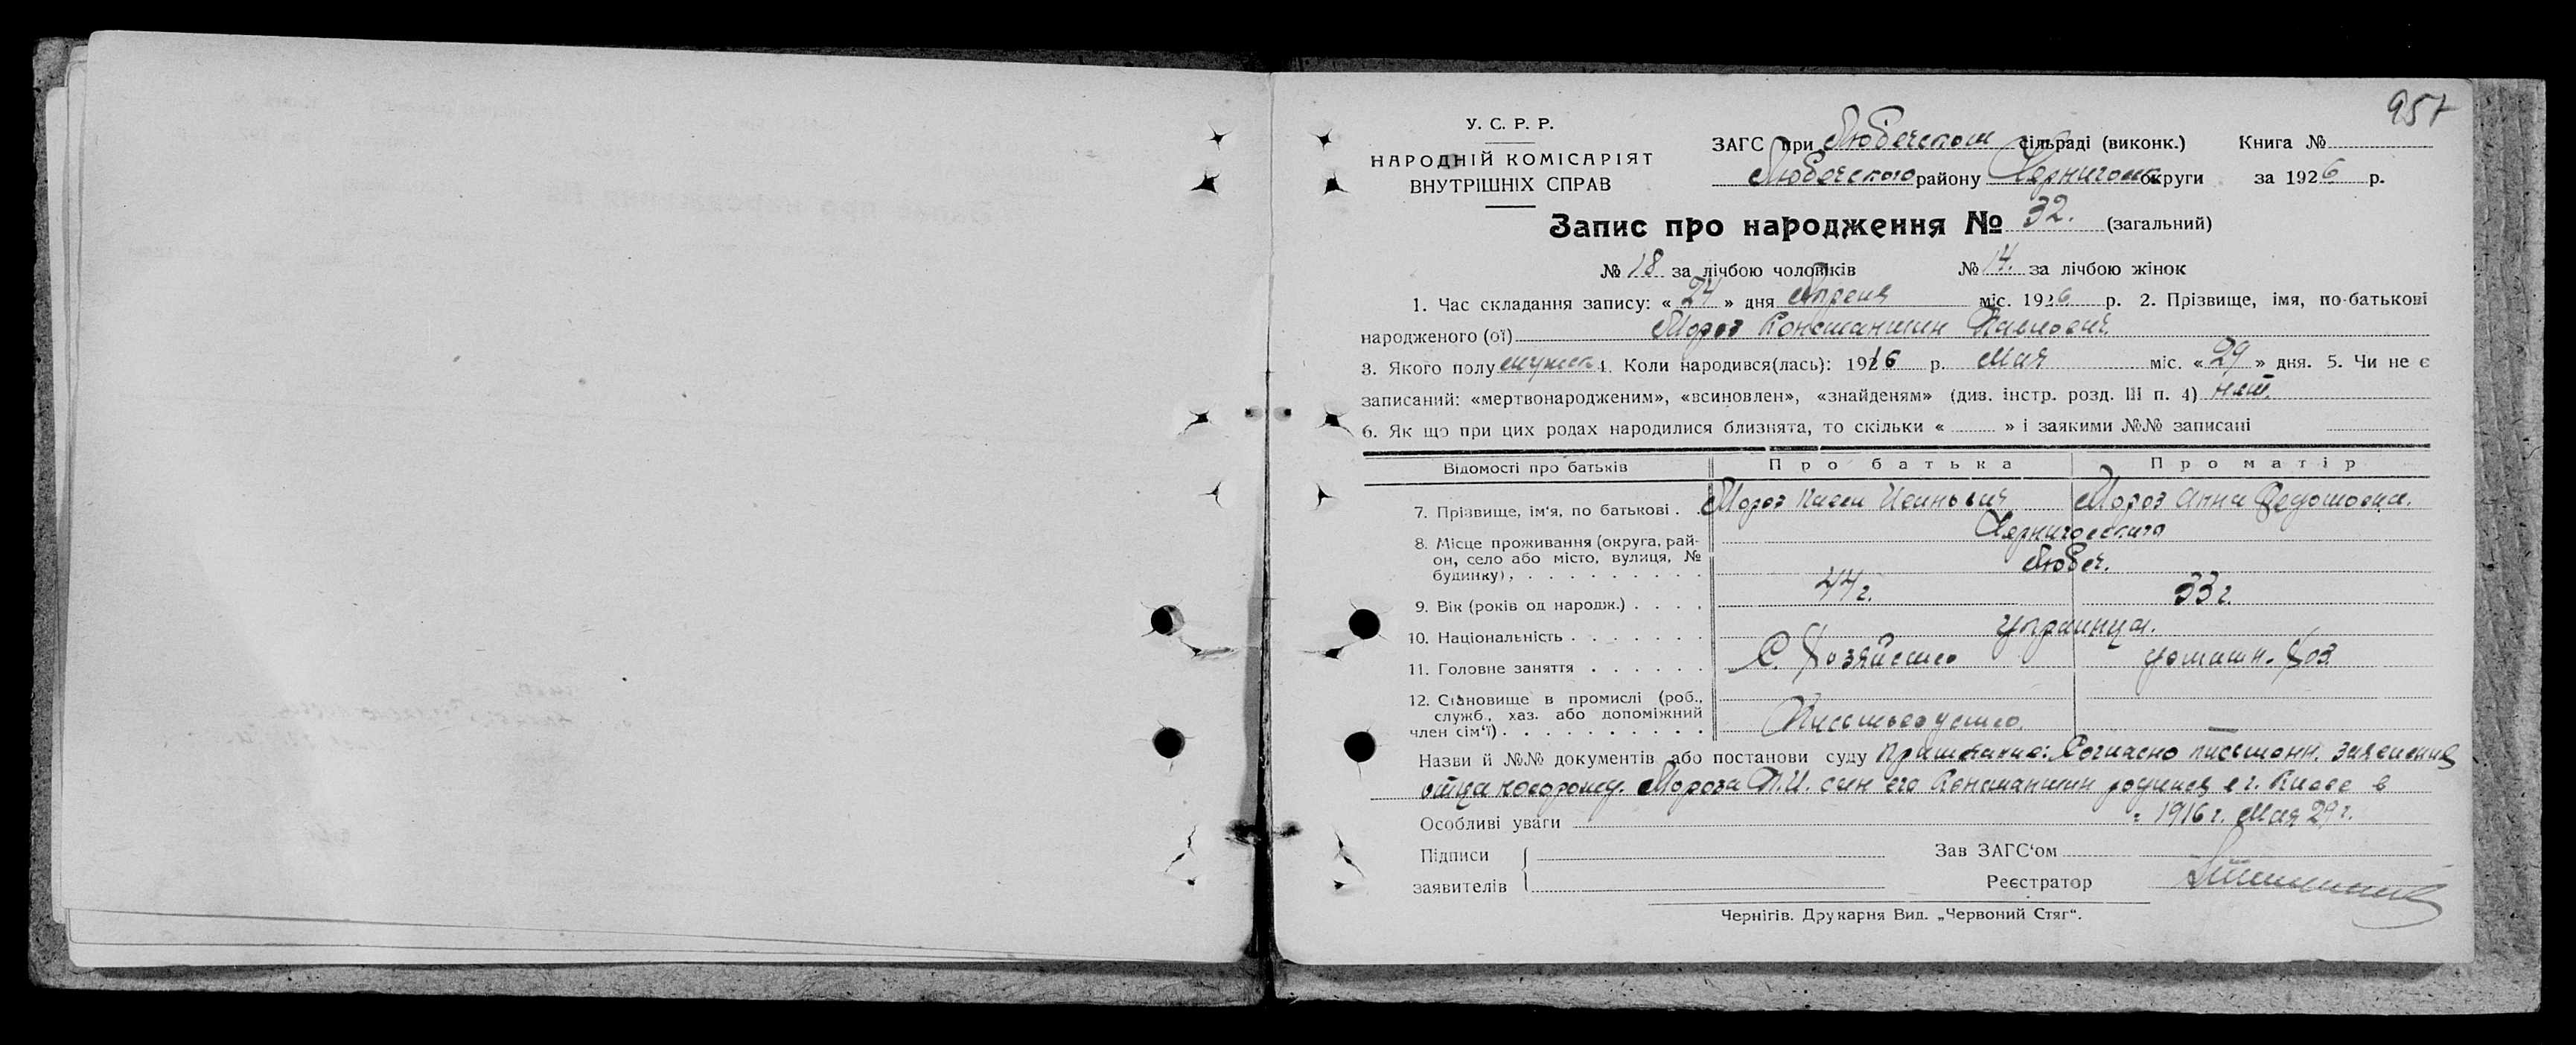 957
У. С. Р. Р.
НАРОДНІЙ КОМІСАРІЯТ
ВНУТРІШНІХ СПРАВ
ЗАГС при Любечском сільраді (виконк.) Книга №
Любечского району Чернигов округи за 1926 р.
Запис про народження № 32. (загальний)
№ 18 за лічбою чоловіків № 14. за лічбою жінок
1. Час складання запису: « 24 » дня Апреля міс. 1926 р. 2. Прізвище, імя, по-батькові
народженого (ої) Мороз Константин Павлович
3. Якого полу мужск 4. Коли народився(лась): 1916 р. Мая міс. « 29 » дня. 5. Чи не є
записаний: «мертвонародженим», «всиновлен», «знайденям» (див. інстр. розд. III п. 4) нет.
6. Як що при цих родах народилися близнята, то скільки « » і заякими №№ записані
Відомості про батьків Про батька Про матір
7. Прізвище, ім'я, по батькові . . Мороз Павел Иванович Мороз Анна Федотовна.
8. Місце проживання (округа, рай-
он, село або місто, вулиця, №
будинку) . . . . . . . . . .
Черниговского
Любеч.
9. Вік (років од народж.) . . . . 44 г. 33 г.
10. Національність . . . . . . . украинца.
11. Головне заняття . . . . . . С. Хозяйство домашн. Хоз.
12. Становище в промислі (роб.,
служб., хаз. або допоміжний
член сім'ї) . . . . . . . . . .
Назви й №№ документів або постанови суду Примечание: Согласно письменн. заявления
отца новорожд. Мороза П.И. син его Константин родился в г. Киеве в
Особливі уваги 1916 г. Мая 29 г.
Підписи
заявителів
Зав ЗАГС'ом
Реєстратор
Чернігів. Друкарня Вид. „Червоний Стяг".